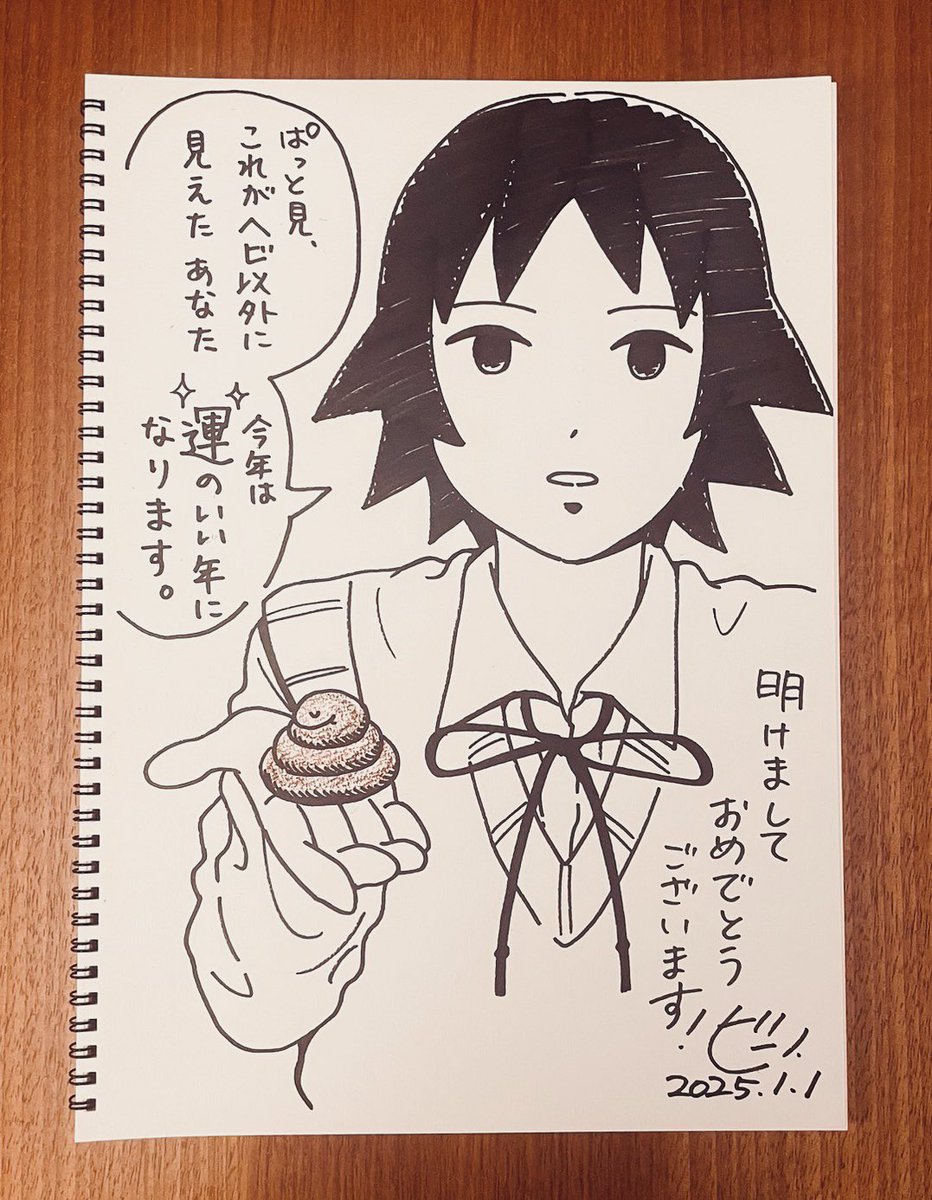 ぱっと見、
これがヘビ以外に
見えた あなた
今年は
運のいい年に
なります。
明けまして
おめでとう
ございます!
2025.1.1